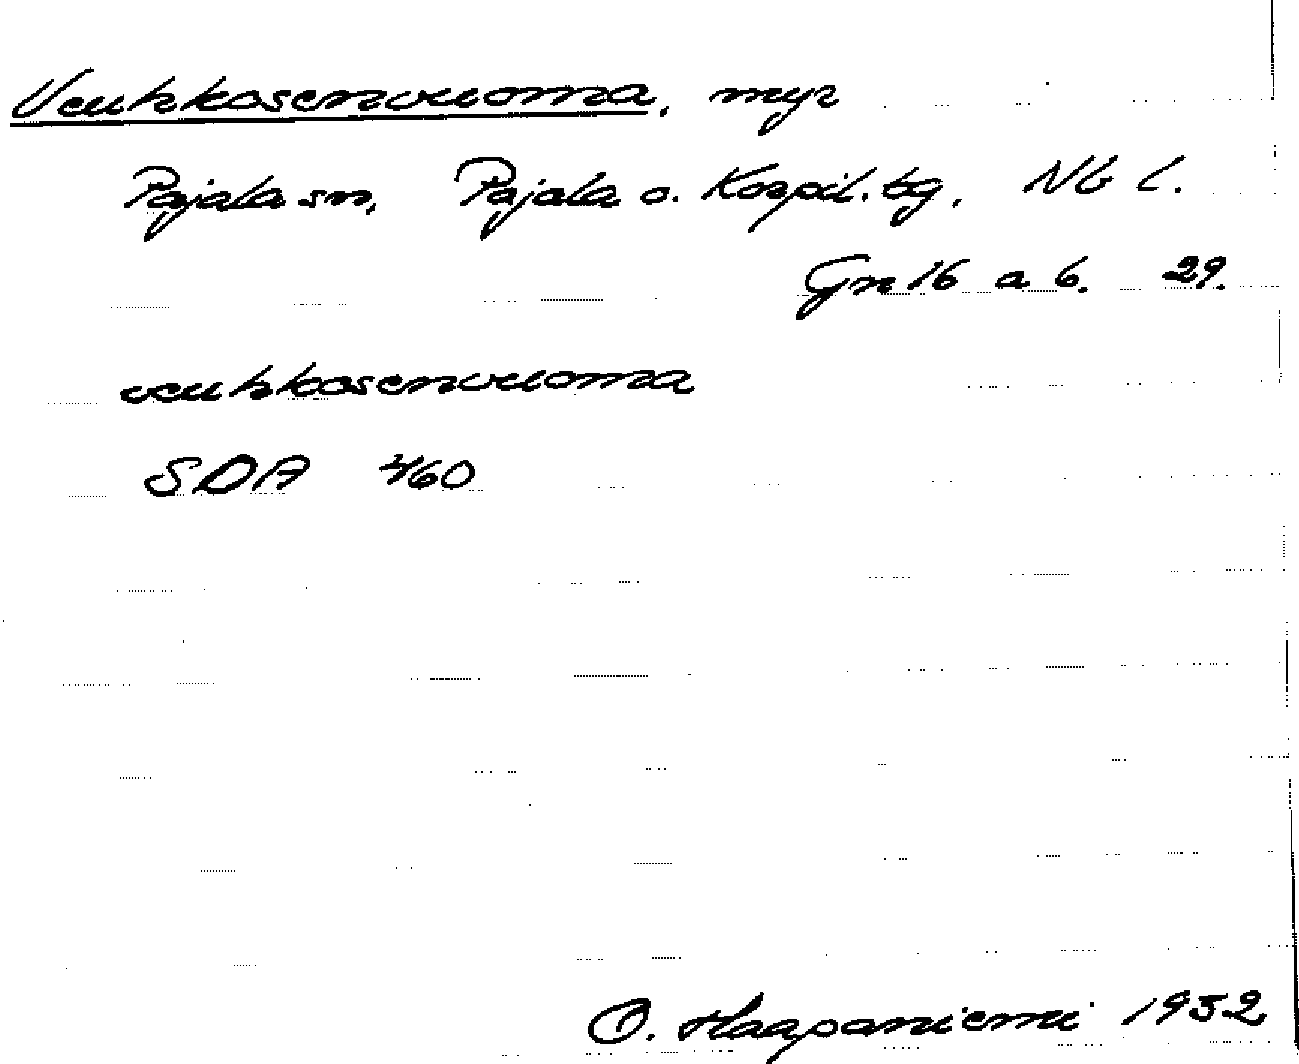 Veuhkosenvuoma, myr
Pajala sn, Pajala o. Korpil. tg, Nb l.
Gn 16 a b. 29.
veuhkosenvuoma
SDA 460
O. Haapaniemi 1932